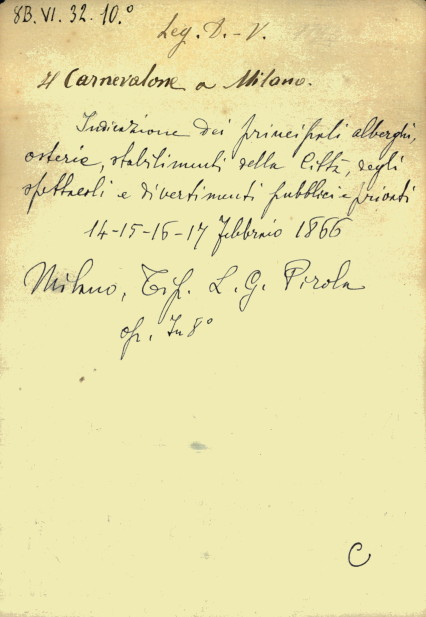 8B. VI. 32. 10.°
Leg. D. - V.
Il Carnevalone a Milano.
Indicazione dei principali alberghi,
osterie, stabilimenti della Città, degli
spettacoli e divertimenti pubblici e privati
14-15-16-17 Febbraio 1866
Milano, Tip. L. G. Pirola
op. In 8°
C